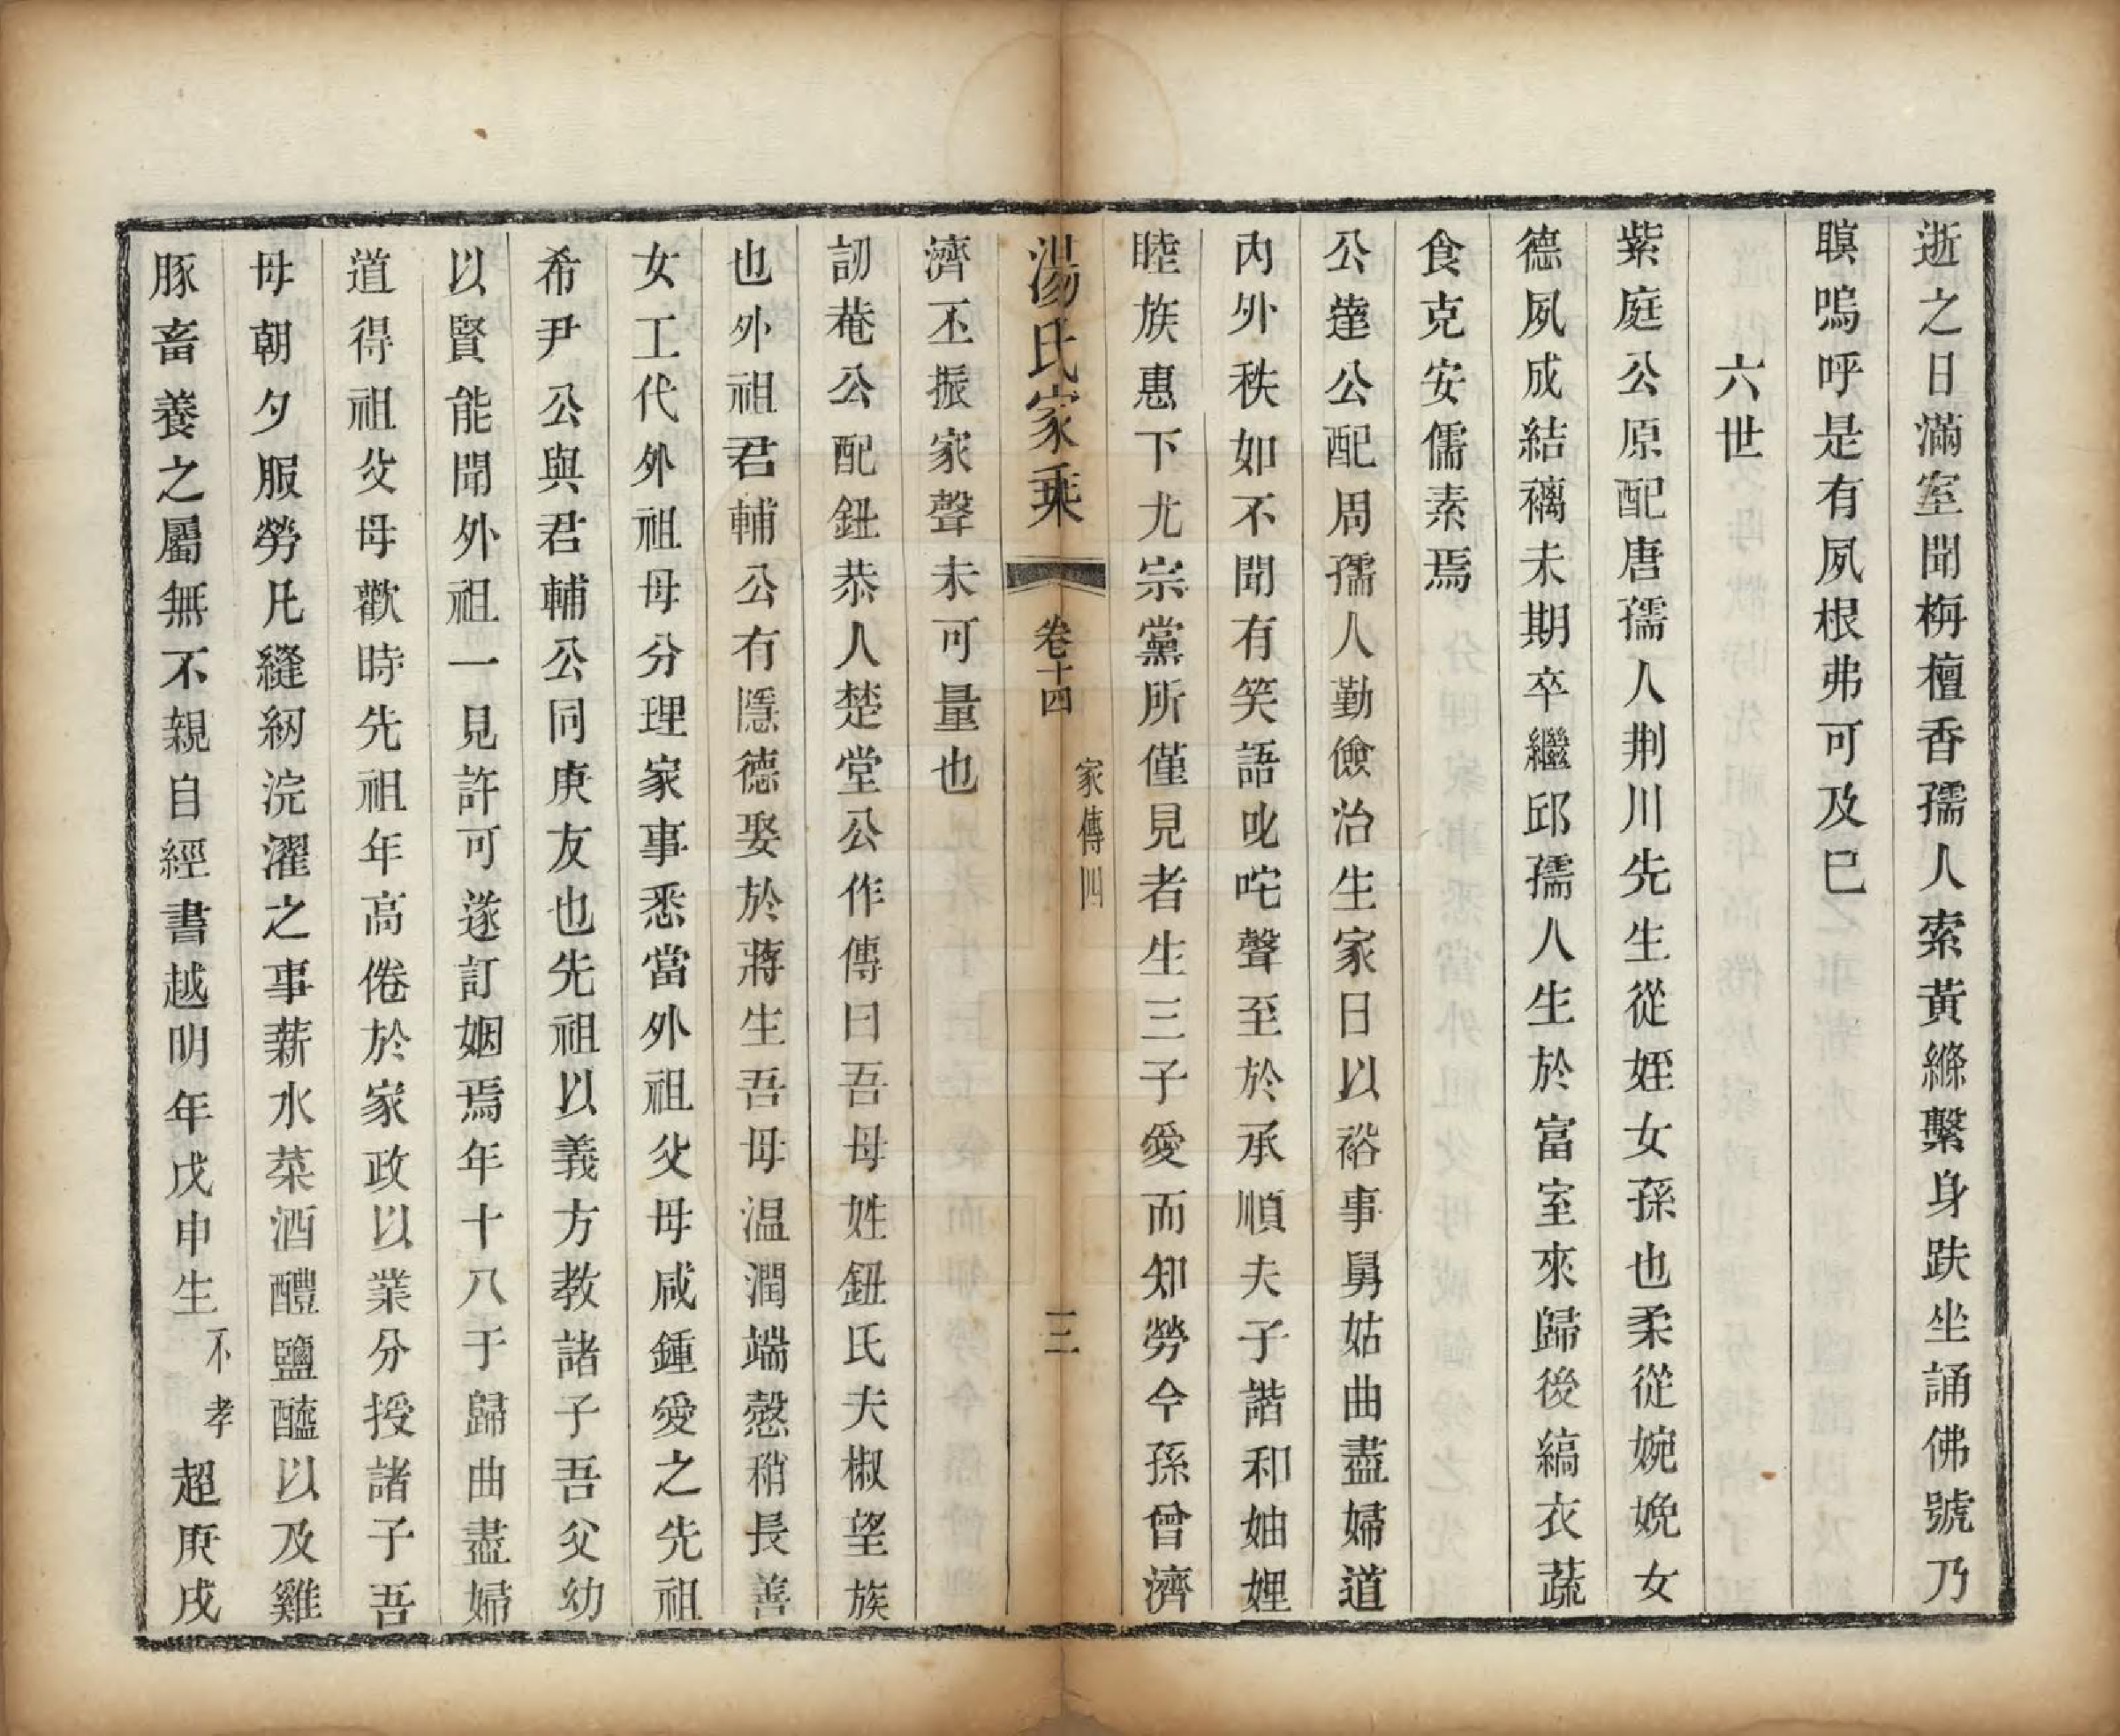 逝之日滿室聞栴檀香孺人索黃縧繫身趺坐誦佛號乃
瞑嗚呼是有夙根弗可及巳
六世
紫庭公原配唐孺人荆川先生從姪女孫也柔從婉娩女
德夙成結褵未期卒繼邱孺人生於富室來歸後縞衣蔬
食克安儒素焉
公薘公配周孺人勤儉治生家日以裕事舅姑曲盡婦道
内外秩如不聞有笑語叱咤聲至於承順夫子諧和妯娌
睦族惠下尤宗黨所僅見者生三子愛而知勞今孫曾濟
湯氏家乘 卷十四 家傳四 三
濟丕振家聲未可量也
訒菴公配鈕恭人楚堂公作傳曰吾母姓鈕氏夫椒望族
也外祖君輔公有隱德娶於蔣生吾母温潤端慤稍長善
女工代外祖母分理家事悉當外祖父母咸鍾愛之先祖
希尹公與君輔公同庚友也先祖以義方教諸子吾父幼
以賢能聞外祖一見許可遂訂姻焉年十八于歸曲盡婦
道得祖父母歡時先祖年高倦於家政以業分授諸子吾
母朝夕服勞凡縫紉浣濯之事薪水菜酒醴鹽醯以及雞
豚畜養之屬無不親自經書越明年戊申生不孝超庚戌